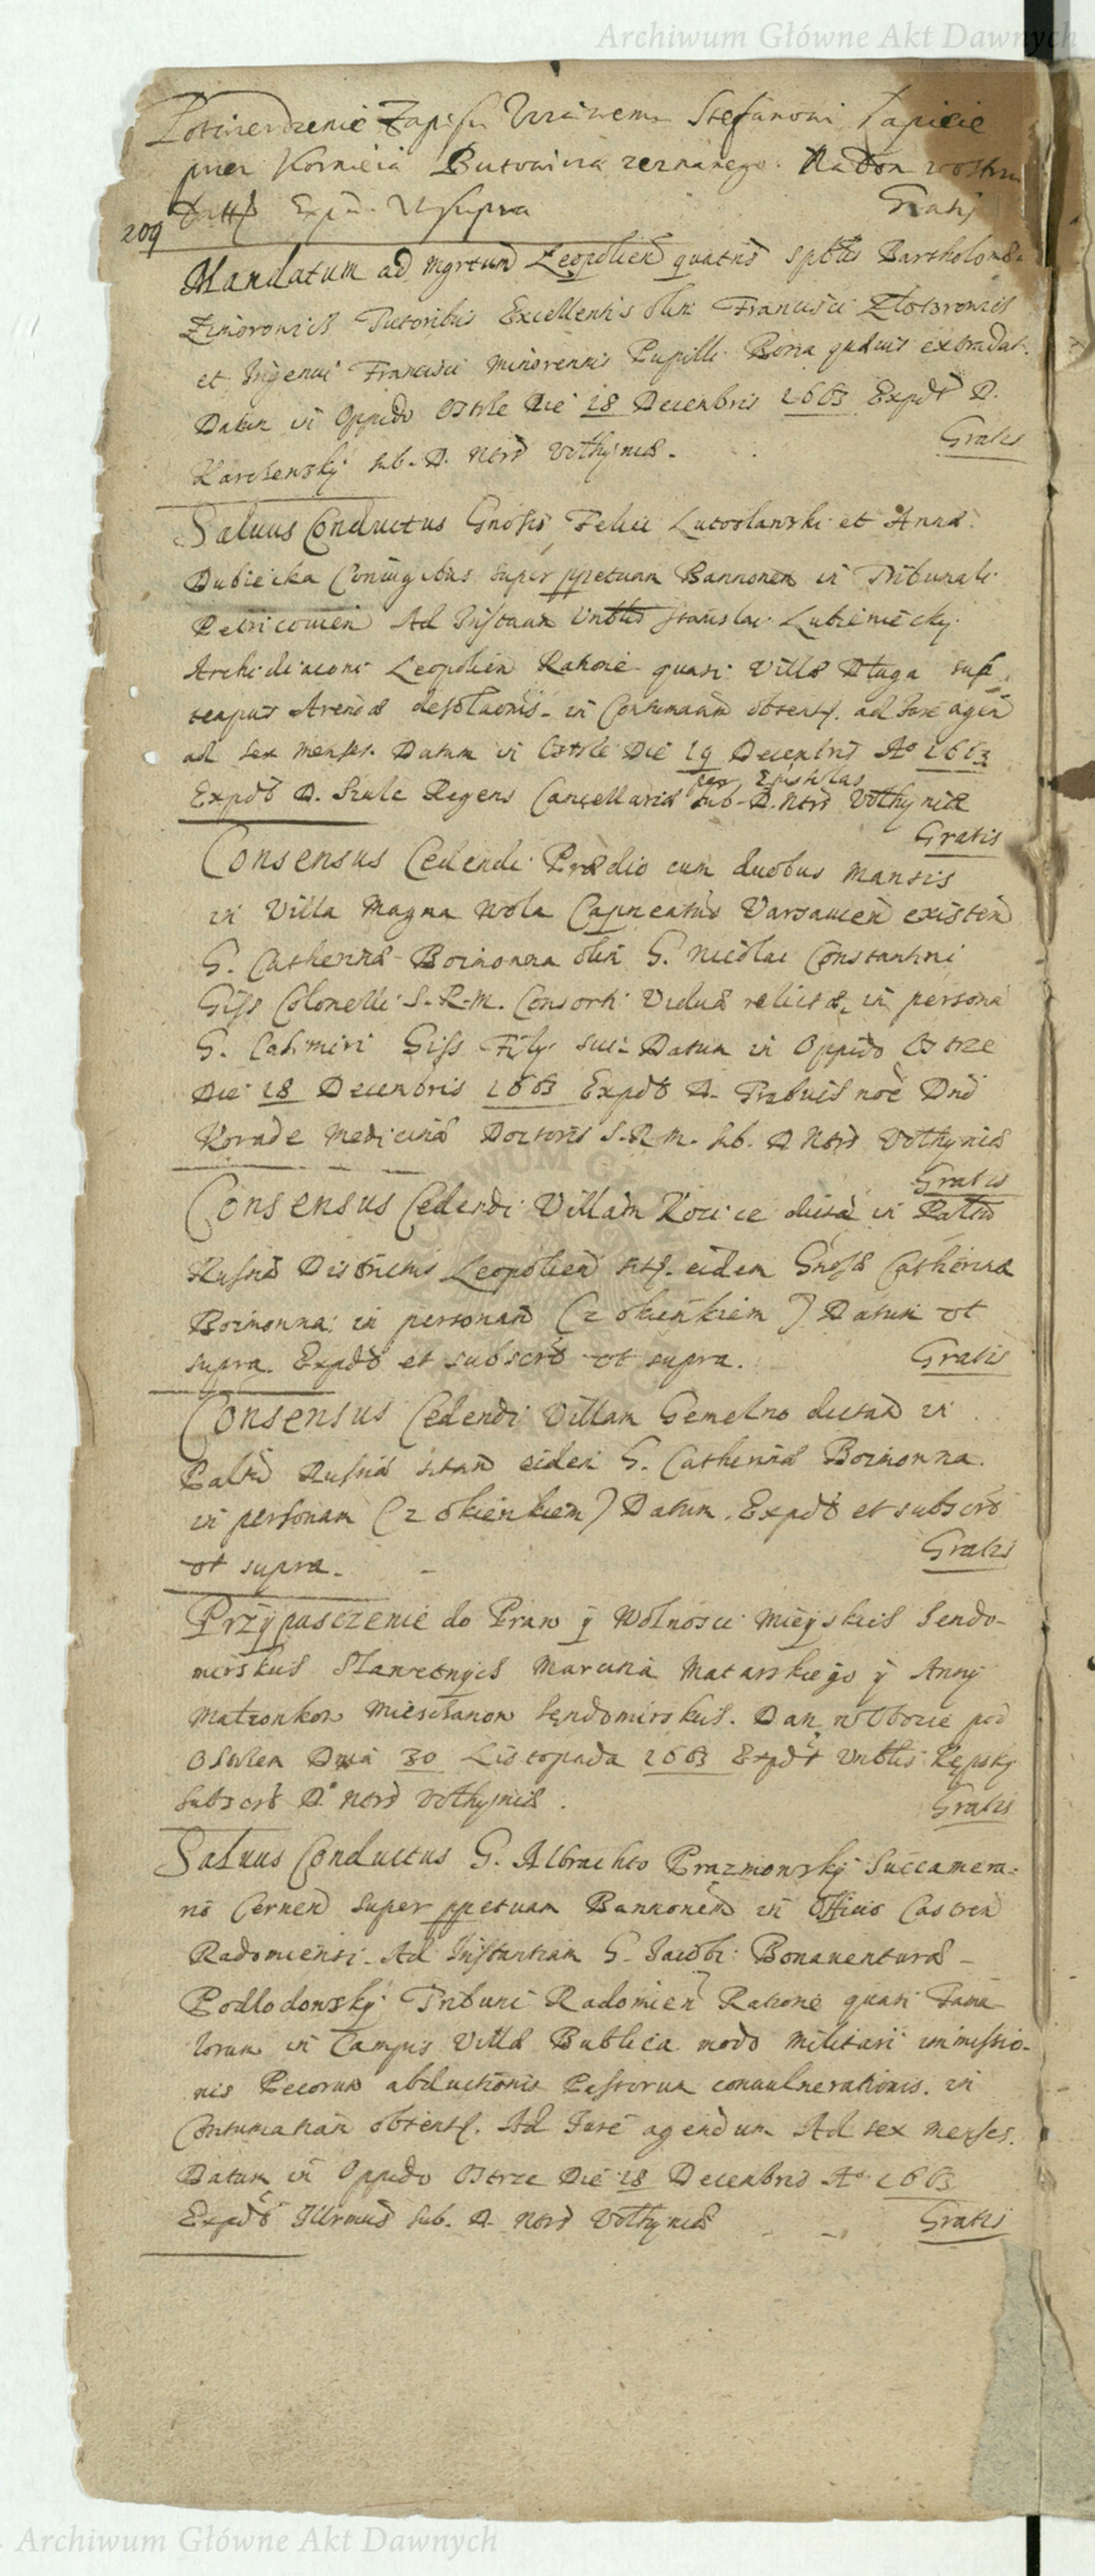 Archiwum Główne Akt Dawnych
Potwierdzenie Zapisu Stefanowi Łapicie
przez Kornieia Butowicza zeznanego. Na Dom
Expd. Ut supra Gratis
209
Mandatum ad mgrtum Leopolien quatns Bartholomeo
Zimorowicz Tutoribus Excellentis olim Francisci
et Ingenui Francisci minorennis Pupilli Bona extradat.
Datum in Oppido Ostrze Die 18 Decembris 1663 Expdt D.
sub. D. Nots Volhyniæ. Gratis
Salvus Conductus Gnosis Felici Lutoslawski et Annæ
Dubiecka Coniugibus super ppetuam Bannonem in Tribunali
Petricovien Ad Instam Vnblis Stanislai Lubieniecky
Archidiaconi Leopolien Raõne quasi Villæ Długa
tempus Arendæ desolaõnis in Contumaciam obtent. ad Jure agen
ad sex menses. Datum in Ostrze Die 19 Decembris Aº 1663
per Epistolas
Expdt D. Szulc Regens Cancellariæ sub D. Nots Volhyniæ
Gratis
Consensus Cedendi Prædio cum duobus mansis
in Villa Magna Wola Capneatus Varsavien existen
G. Catherinæ Boimowna olim G. Nicolai Constantini
Giss Colonelli S.R.M. Consorti Viduæ relictæ, in persona
G. Casimiri Giss Filij sui. Datum in Oppido Ostrze
Die 18 Decembris 1663 Expdt D. noe Dnd
Korade Medicinæ Doctoris S.R.M. sub. D Nots Volhyniæ
Gratis
Consensus Cedendi Villam Kozice dictã in Palttu
Russiæ Districtus Leopolien sit. eidem Gnosæ Catherinæ
Boimowna in personam (z okienkiem) Datum vt
supra. Expdt et subscrõ vt supra. Gratis
Consensus Cedendi Villam Gemelno dictam in
Paltu Russiæ sitam eidem G. Catherinæ Boimowna.
in personam (z okienkiem) Datum. Expdt et subscrõ
vt supra. Gratis
Przypusczenie do Praw ÿ Wolnosci Mieyskich Sendo-
mirskich Sławetnych Marcina Matarskiego ÿ Anny
Małzonkow Miesczanow Sendomirskich. Dan w Obozie pod
Ostrem Dnia 30 Listopada 1663 Expdt Vnblis
subscrõ D. Nots Volhyniæ. Gratis
Salvus Conductus G. Albrachto Prazmowsky Succamera-
rio Cernen super ppetuam Bannonem in Officio Castren
Radomiensi. Ad Instantiam G. Jacobi Bonaventuræ
Podlodowsky Tribuni Radomien Ratione quasi Famu
lorum in Campis Villæ Bublica modo militari immissio-
nis Pecorum abductionis Pastorum convulnerationis. in
Contumatiam obtent. Ad Jure agendum Ad sex menses.
Datum in Oppido Ostrze Die 18 Decembris Aº 1663
Expdt Illrmus sub. D. Nots Volhyniæ Gratis
Archiwum Główne Akt Dawnych